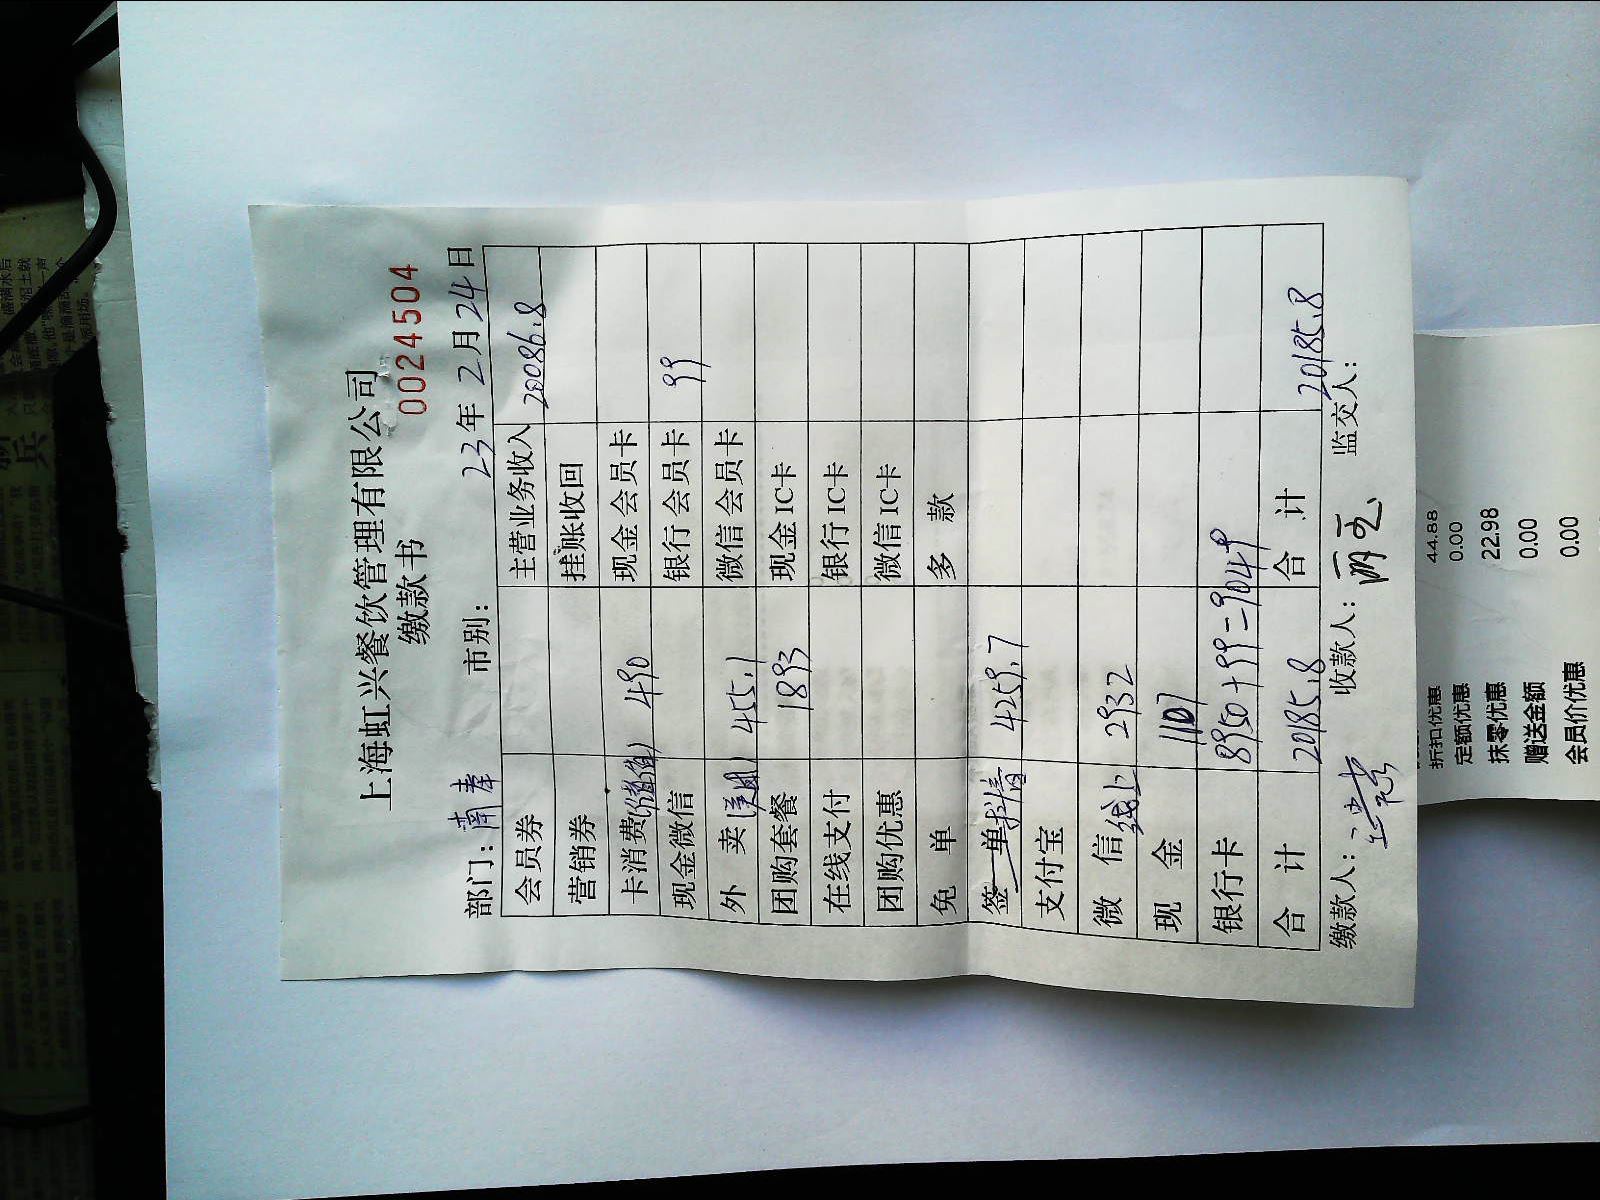 上海虹兴餐饮管理有限公司
缴款书 0024504
部门: 南奉 市别: 23年2月24日
会员券 主营业务收入 20086.8
营销券 挂账收回
卡消费(储值) 490 现金会员卡
现金微信 银行会员卡 99
外 卖(美团) 455.1 微信会员卡
团购套餐 1893 现金IC卡
在线支付 银行IC卡
团购优惠 微信IC卡
免 单 多 款
签 单 抖音 4259.7
支付宝
微 信 线上 2932
现 金 1107
银行卡 8950+99=9049
合 计 20185.8 合 计 20185.8
缴款人: 收款人: 监交人:
折扣优惠 44.88
定额优惠 0.00
抹零优惠 22.98
赠送金额 0.00
会员价优惠 0.00